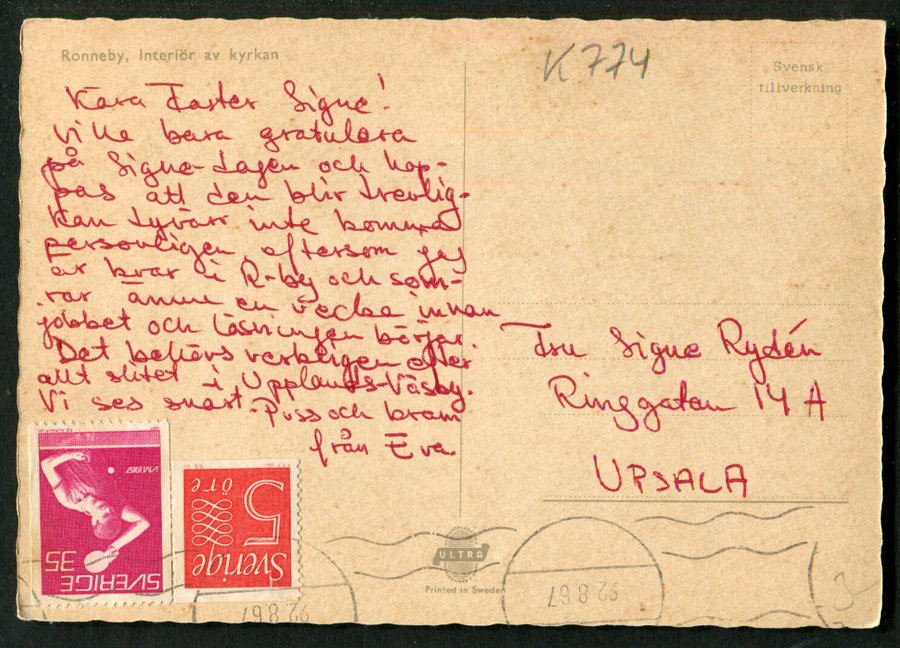 Ronneby, Interiör av kyrkan
K774
Svensk
tillverkning
Kära Faster Signe!
Ville bara gratulera
på Signe-dagen och hop-
pas att den blir trevlig.
Kan tyvärr inte komma
personligen eftersom jag
är kvar i R-by och som-
rar ännu en vecka innan
jobbet och läsningen börjar.
Det behövs verkligen efter
allt slitet i Upplands-Väsby.
Vi ses snart. Puss och kram
från Eva.
Fru Signe Rydén
Ringgatan 14 A
UPSALA
VM 1967
35
SVERIGE
5
öre
Sverige
ULTRA
Printed in Sweden
22.8.67
22.8.67